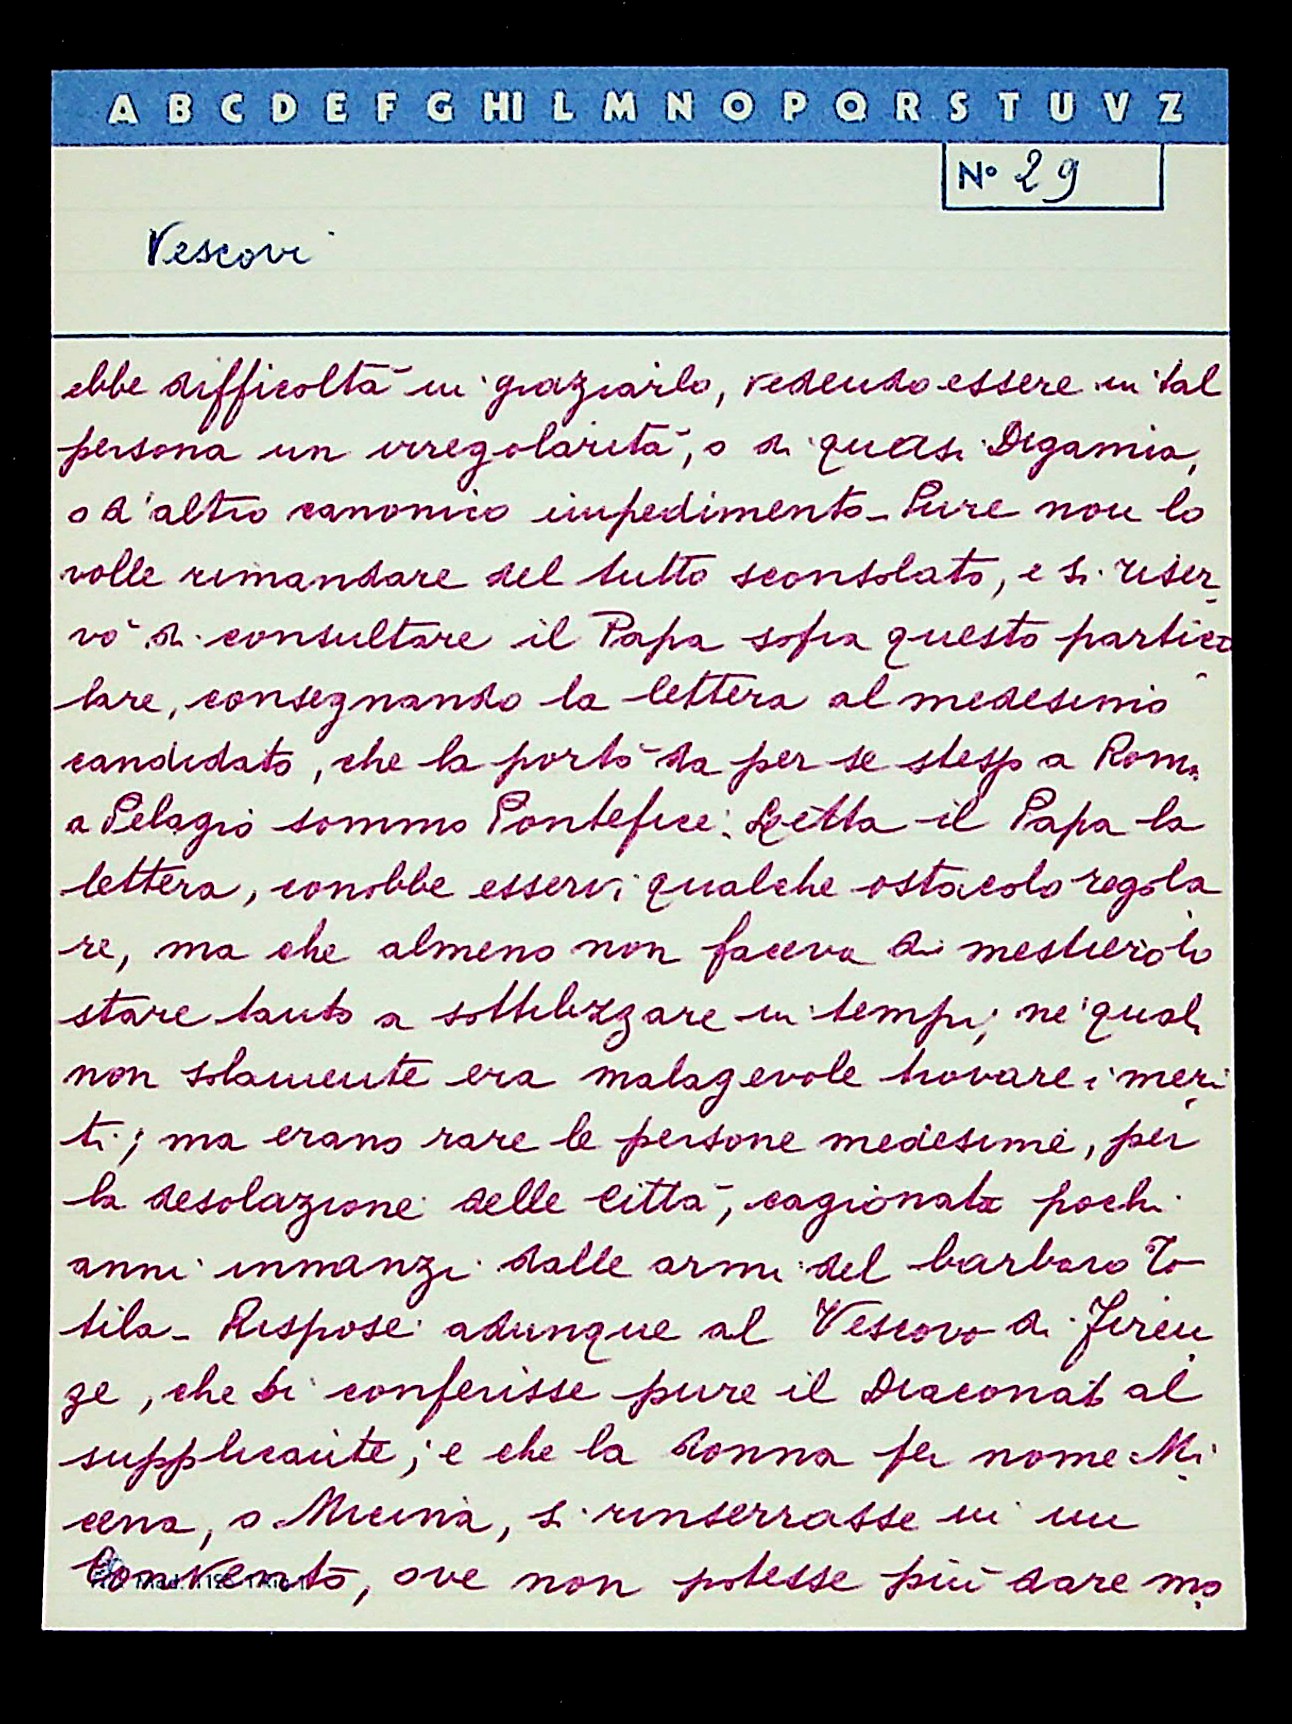 A B C D E F G HI L M N O P Q R S T U V Z
N° 29
Vescovi
ebbe difficoltà in graziarlo, vedendo essere in tal
persona un irregolarità, o di quasi Digamia,
o d'altro canonico impedimento - Pure non lo
volle rimandare del tutto sconsolato, e si riser
vò di consultare il Papa sopra questo partico
lare, consegnando la lettera al medesimo
candidato, che la portò da per se stesso a Roma
a Pelagio sommo Pontefice: Letta il Papa la
lettera, conobbe esservi qualche ostacolo regola
re, ma che almeno non faceva di mestiero lo
stare tanto a sottilizzare in tempi, ne' quali
non solamente era malagevole trovare i meri
ti; ma erano rare le persone medesime, per
la desolazione delle Città, cagionata pochi
anni innanzi dalle armi del barbaro To
tila - Rispose adunque al Vescovo di Firen
ze, che si conferisse pure il Diaconato al
supplicante; e che la donna per nome Mi
cena, o Micina, si rinserrasse in un
Convento, ove non potesse più dare mo